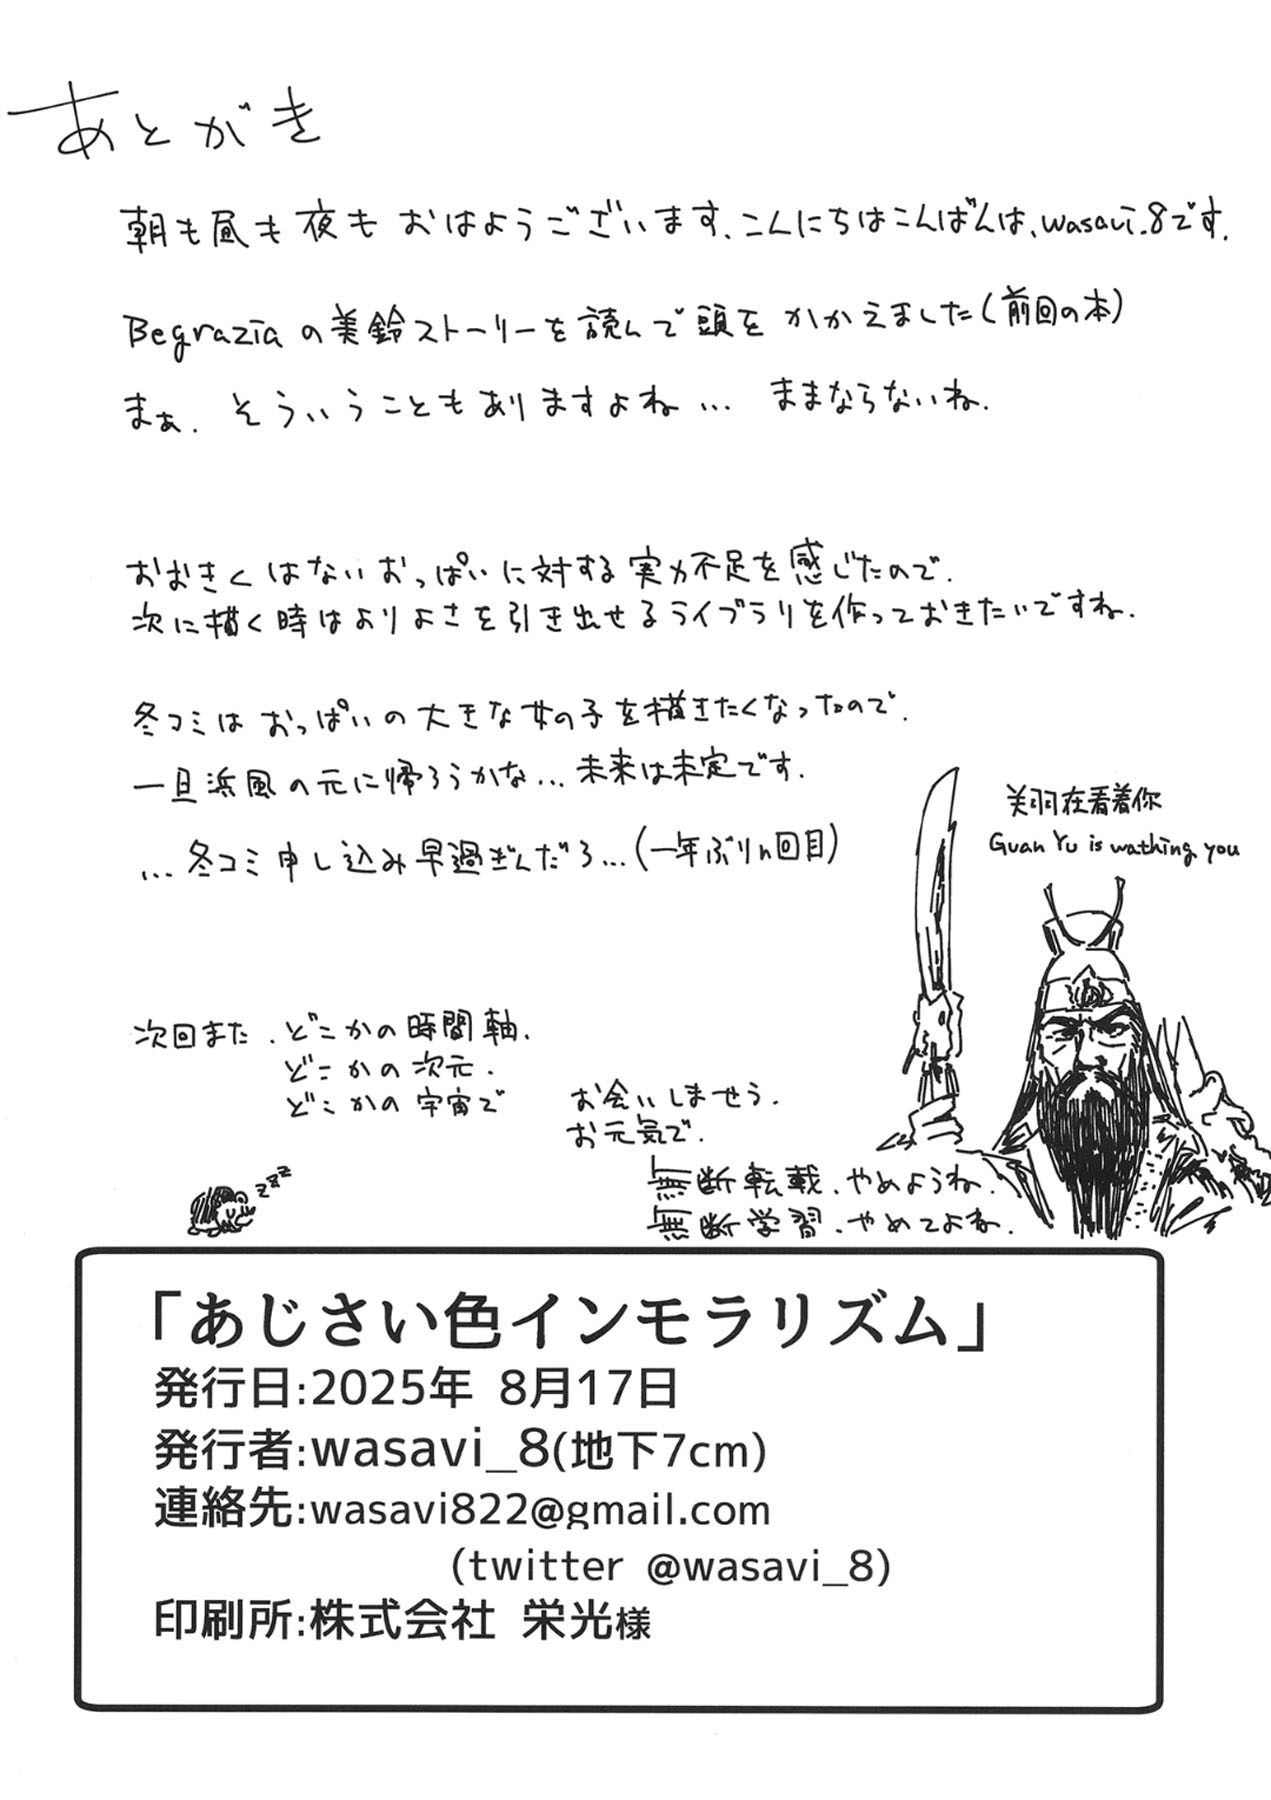 あとがき
朝も昼も夜も おはようございます、こんにちはこんばんは、wasavi_8です.
Begraziaの美鈴ストーリーを読んで頭をかかえました(前回の本)
まぁ、そういうこともありますよね… ままならないね.
おおきくはないおっぱいに対する実力不足を感じたので、
次に描く時はよりよさを引き出せるライブラリを作っておきたいですね.
冬コミはおっぱいの大きな女の子を描きたくなったので、
一旦浜風の元に帰ろうかな… 未来は未定です.
…冬コミ申し込み早過ぎんだろ…(一年ぶりn回目)
关羽在看着你
Guan Yu is wathing you
次回また、どこかの時間軸、
どこかの次元、
どこかの宇宙で
お会いしませう.
お元気で.
zzz
無断転載、やめようね.
無断学習、やめてよね.
「あじさい色インモラリズム」
発行日:2025年 8月17日
発行者:wasavi_8(地下7cm)
連絡先:wasavi822@gmail.com
(twitter @wasavi_8)
印刷所:株式会社 栄光様